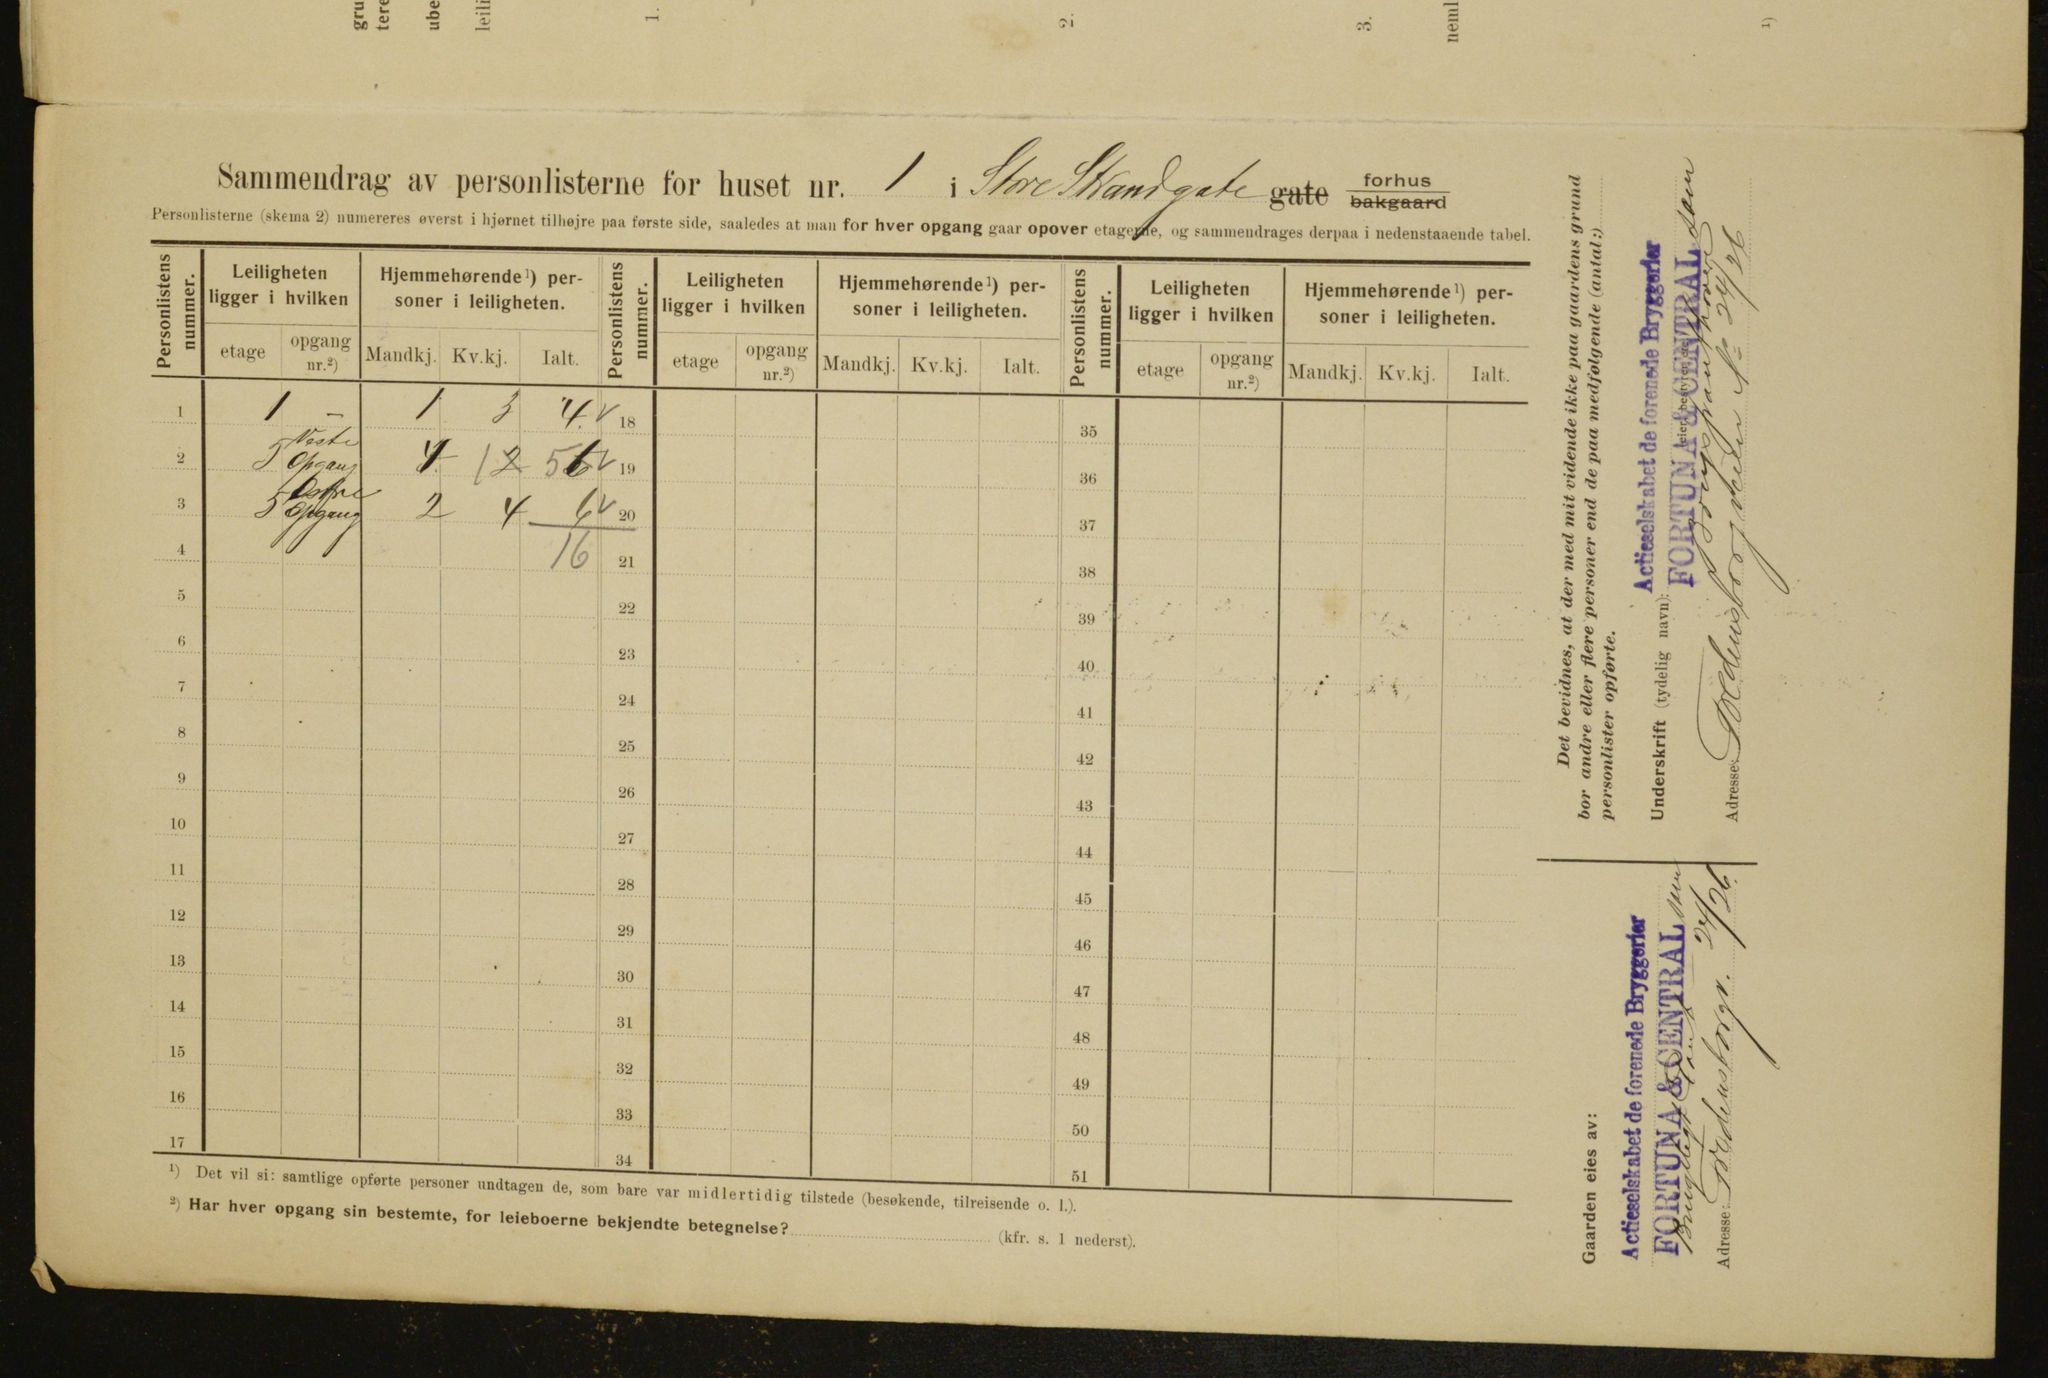 gru
tere
ube
leili
1.
2.
3.
neml
1)
Sammendrag av personlisterne for huset nr. 1 i Store Strandgate gate forhus bakgaard
Personlisterne (skema 2) numereres øverst i hjørnet tilhøjre paa første side, saaledes at man for hver opgang gaar opover etagerne, og sammendrages derpaa i nedenstaaende tabel.
Personlistens nummer.
Leiligheten ligger i hvilken
Hjemmehørende¹) personer i leiligheten.
etage
opgang nr.²)
Mandkj.
Kv.kj.
Ialt.
Personlistens nummer.
Leiligheten ligger i hvilken
Hjemmehørende¹) personer i leiligheten.
etage
opgang nr.²)
Mandkj.
Kv.kj.
Ialt.
Personlistens nummer.
Leiligheten ligger i hvilken
Hjemmehørende¹) personer i leiligheten.
etage
opgang nr.²)
Mandkj.
Kv.kj.
Ialt.
1 1 – 1 3 4 v 18 35
2 5 Opgang 4 1 2 5 6 v 19 36
3 5 Østre Opgang 2 4 6 v 20 37
4 16 21 38
5 22 39
6 23 40
7 24 41
8 25 42
9 26 43
10 27 44
11 28 45
12 29 46
13 30 47
14 31 48
15 32 49
16 33 50
17 34 51
¹) Det vil si: samtlige opførte personer undtagen de, som bare var midlertidig tilstede (besøkende, tilreisende o. l.).
²) Har hver opgang sin bestemte, for leieboerne bekjendte betegnelse? (kfr. s. 1 nederst).
Det bevidnes, at der med mit vidende ikke paa gaardens grund
bor andre eller flere personer end de paa medfølgende (antal:)
personlister opførte.
Actieselskabet de forenede Bryggerier
Underskrift (tydelig navn):
FORTUNA & CENTRAL
som
Adresse: Fredensborgveien No 24/26
Gaarden eies av:
Actieselskabet de forenede Bryggerier
FORTUNA & CENTRAL
Adresse: Fredensborgv. 24/26.